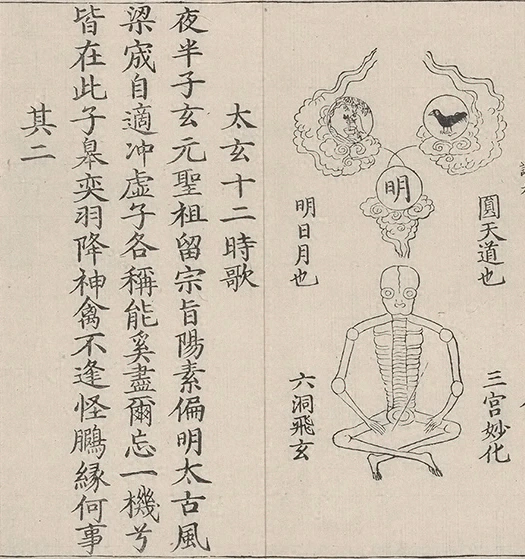 圓天道也
三宮妙化
明
明日月也
六洞飛玄
太玄十二時歌
夜半子玄元聖祖留宗旨陽素偏明太古風
梁宬自適冲虛子各稱能奚盡爾忘一機兮
皆在此子皋奕羽降神禽不逢怪鵬緣何事
其二